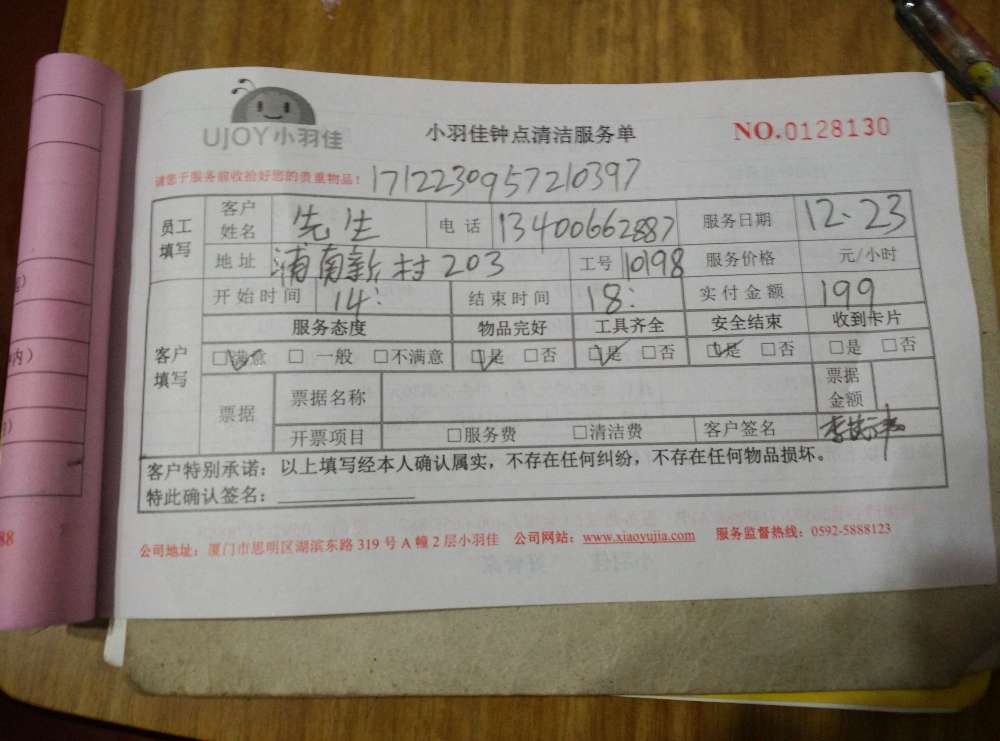 UJOY小羽佳
小羽佳钟点清洁服务单
NO.0128130
请您于服务前收拾好您的贵重物品!
1712230957210397
员工填写 客户姓名 先生 电话 13400662887 服务日期 12.23
地址 浦南新村203 工号 10198 服务价格 元/小时
客户填写 开始时间 14: 结束时间 18: 实付金额 199
服务态度 物品完好 工具齐全 安全结束 收到卡片
☑满意 □ 一般 □不满意 ☑是 □否 ☑是 □否 ☑是 □否 □是 □否
票据 票据名称 票据金额
开票项目 □服务费 □清洁费 客户签名
客户特别承诺：以上填写经本人确认属实，不存在任何纠纷，不存在任何物品损坏。
特此确认签名：
公司地址：厦门市思明区湖滨东路 319 号 A 幢 2 层小羽佳 公司网站：www.xiaoyujia.com 服务监督热线：0592-5888123
内）
88